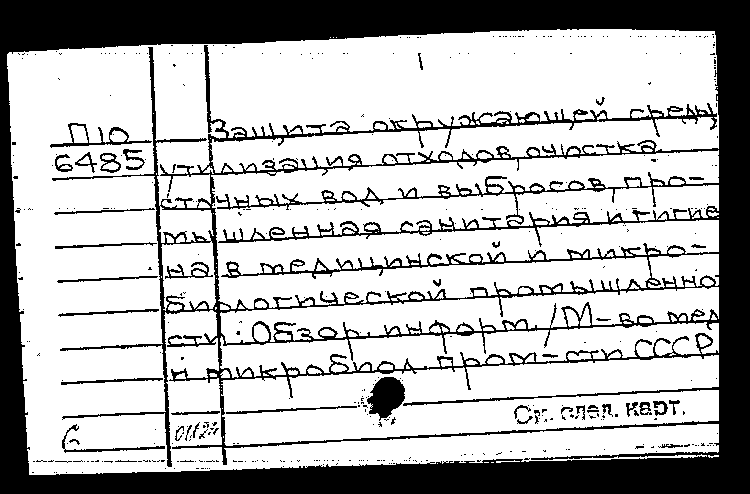 П10 Защита окружающей среды,
6485 утилизация отходов, очистка
сточных вод и выбросов, про-
мышленная санитария и гигие
на в медицинской и микро-
биологической промышленно
сти: Обзор. информ. / М-во мед
и микробиол. пром-сти СССР.
См. след. карт.
6